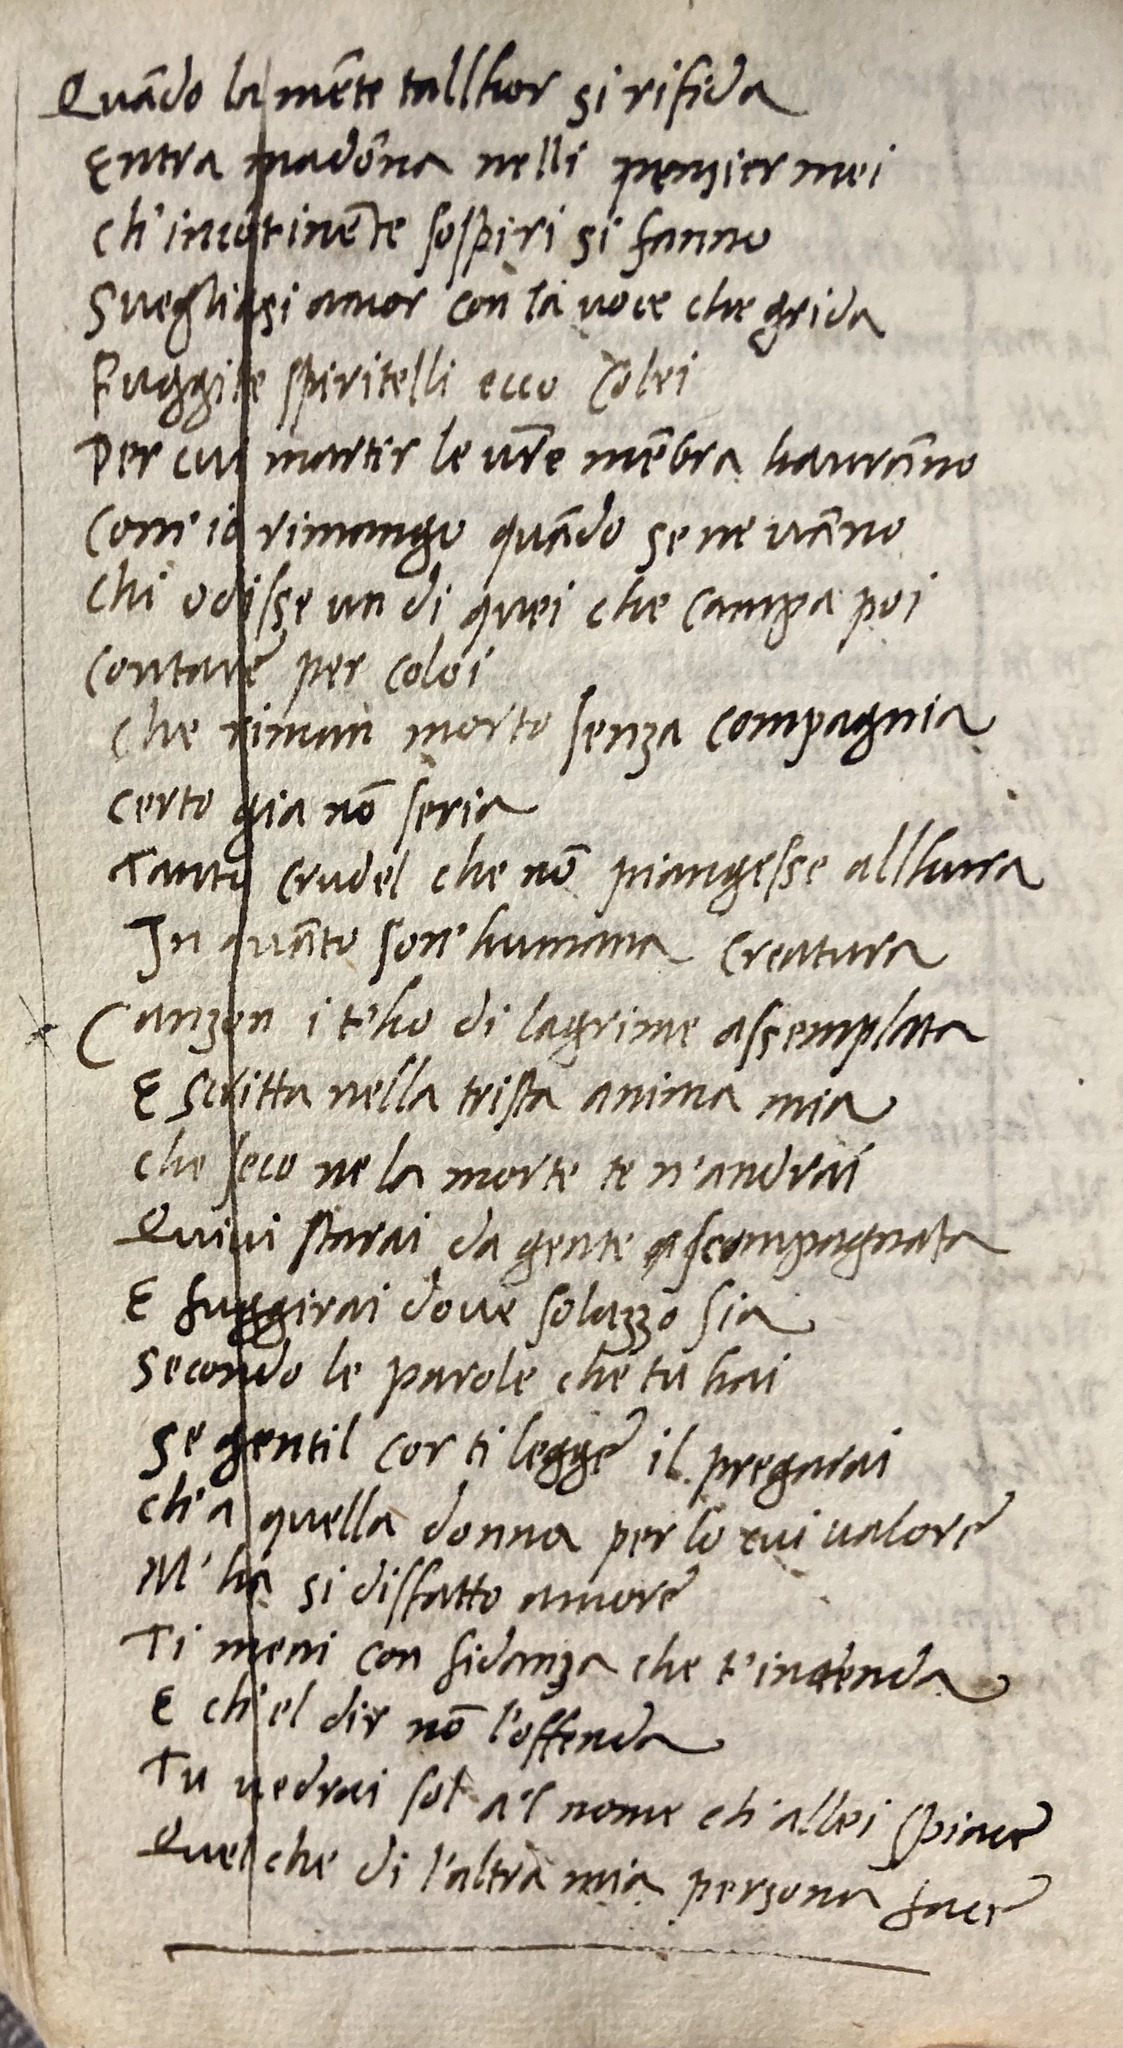 Quãdo la mẽte tallhor si rifida
Entra madõna nelli penzier mei
ch'incõtinẽte sospiri si fanno
Svegliasi amor con la uoce che grida
Fuggite spiritelli ecco Colei
Per cui martir le ur̃e mẽbra haurãno
Com'io rimango quãdo se ne uãno
Chi odisse un di quei che campa poi
Contare per coloi
che riman morto senza compagnia
Certo gia nõ seria
Tanto crudel che nõ piangesse allhura
In quãto son' humana creatura
Canzon i t'ho di lagrime assemplata
E scritta nella trista anima mia
che seco ne la morte te n'andrai
Quiui starai da gente ascompagnata
E fuggirai doue solazzo sia
Secondo le parole che tu hai
Se gentil cor ti legge il pregarai
ch'a quella donna per lo cui ualore
M'ha si disfatto amore
Ti meni con fidanza che t'intenda
E ch'el dir nõ l'offenda
Tu uedrai sol a'l nome ch'allei spiace
Quel che di l'altra mia persona face